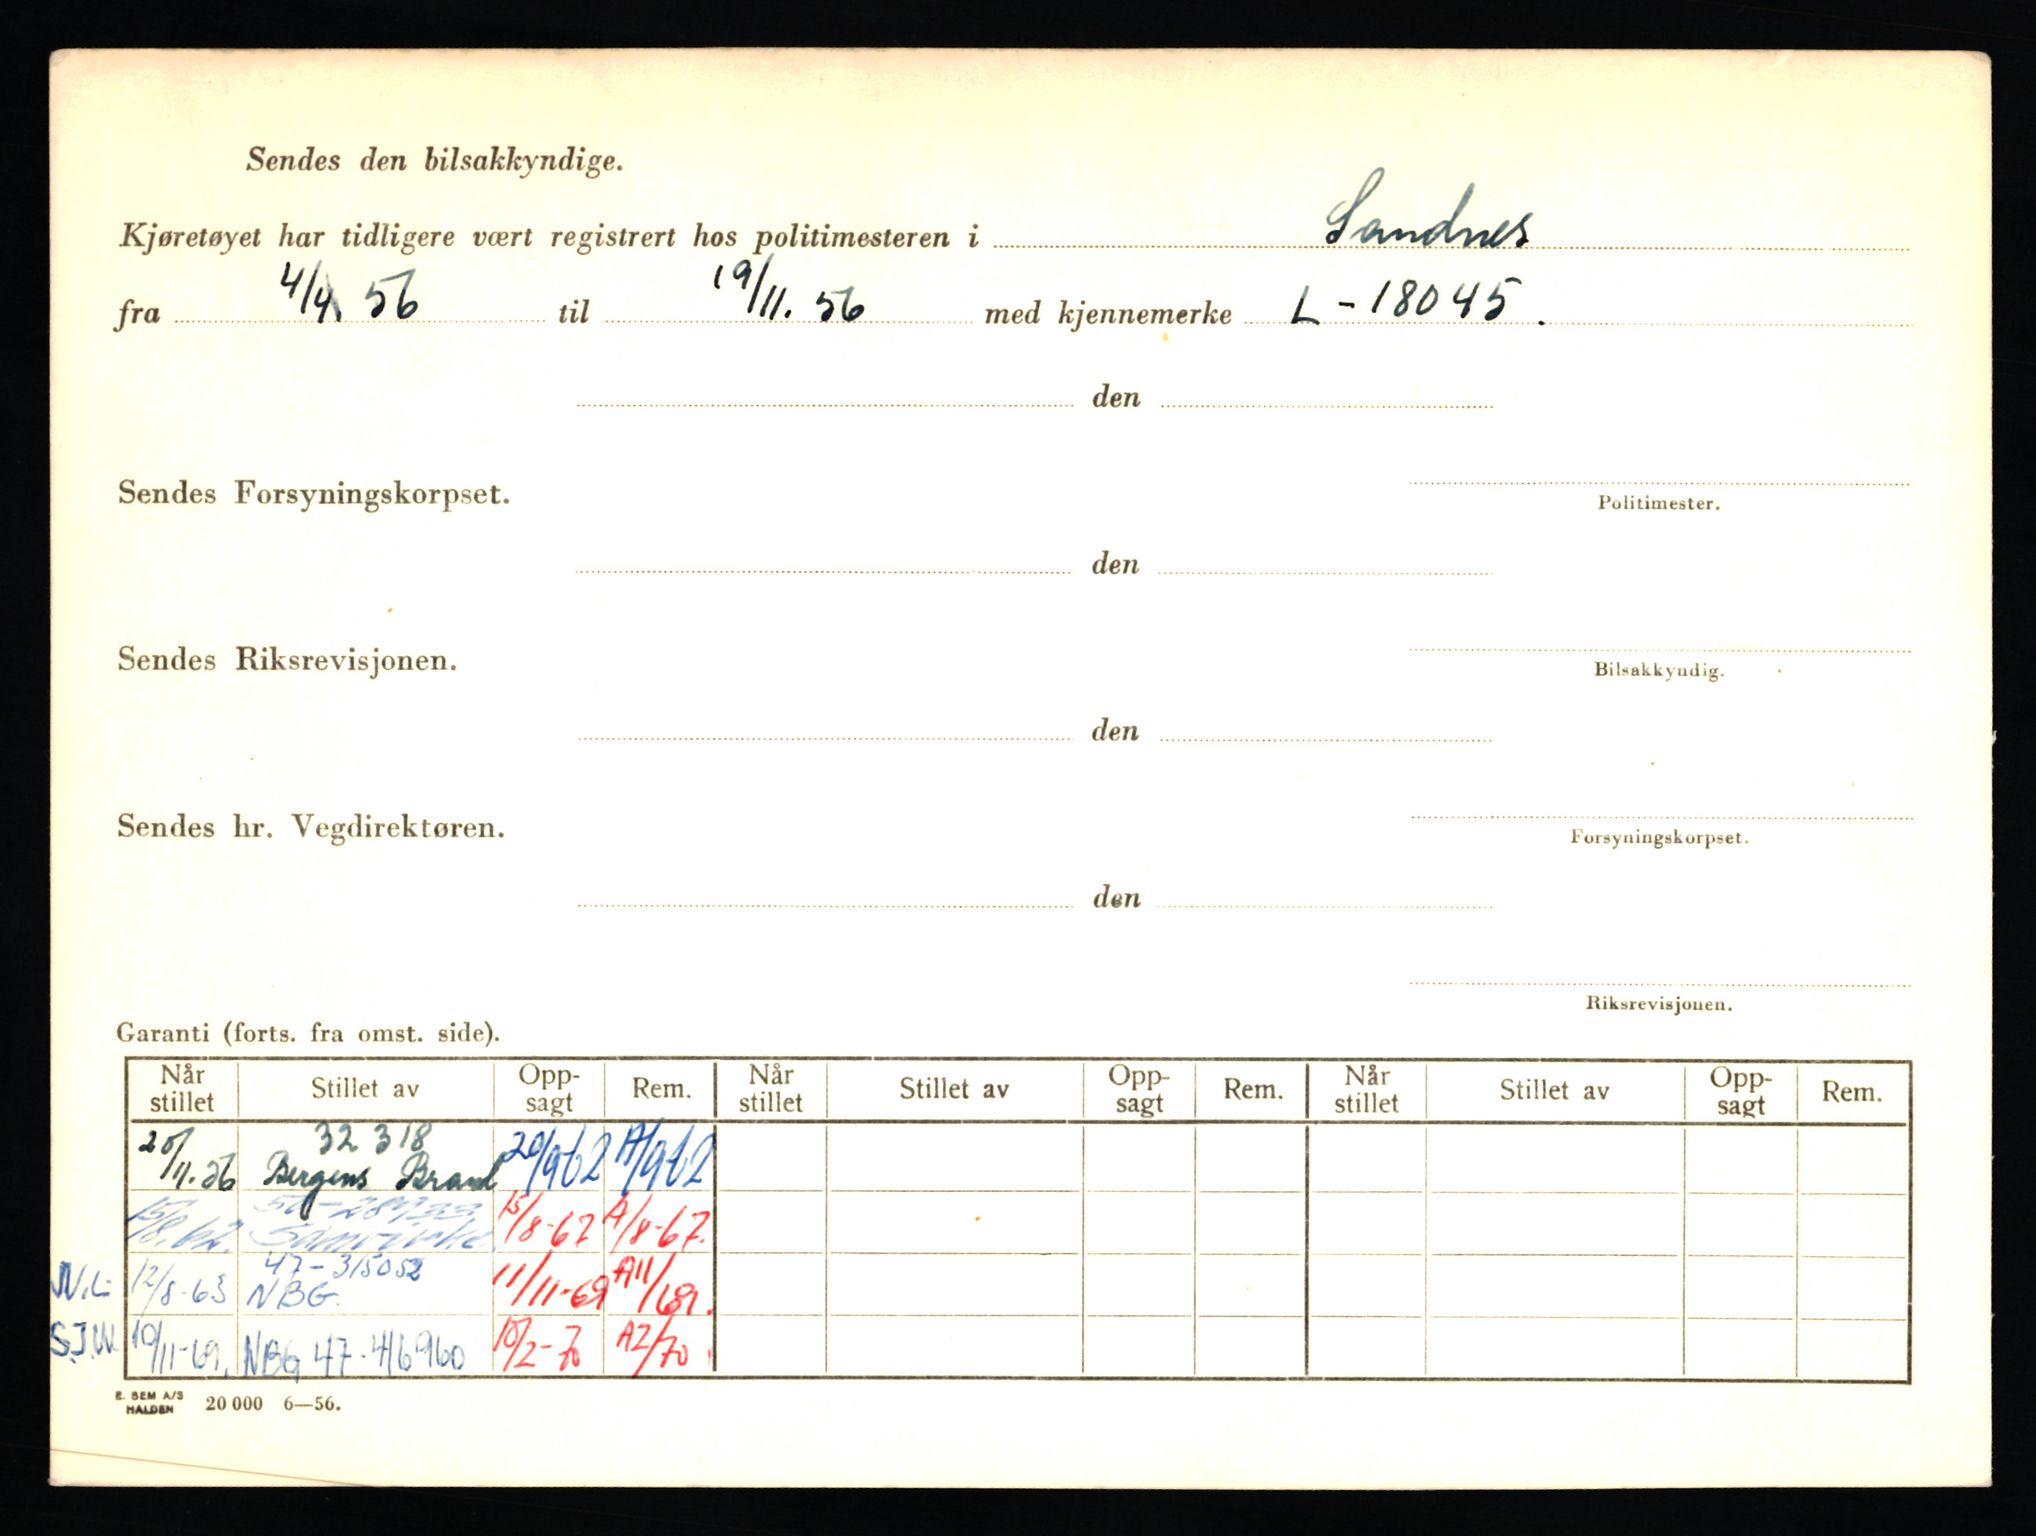 Sendes den bilsakkyndige.
Kjøretøyet har tidligere vært registrert hos politimesteren i Sandnes
fra 4/4 56 til 19/11. 56 med kjennemerke L-18045.
den
Sendes Forsyningskorpset.
Politimester.
den
Sendes Riksrevisjonen.
Bilsakkyndig.
den
Sendes hr. Vegdirektøren.
Forsyningskorpset.
den
Riksrevisjonen.
Garanti (forts. fra omst. side).
Når stillet Stillet av Opp-sagt Rem. Når stillet Stillet av Opp-sagt Rem. Når stillet Stillet av Opp-sagt Rem.
32 318
20/11.56 Bergens Brand 20/962 A/962
15/8.62. Samvirke 15/8-67 A/8-67.
47-315052
12/8-63 NBG 11/11-69 A11/69.
S.J.W. 10/11-69. NBG 47-416960 10/2-70 A2/70
E. SEM A/S
HALDEN 20 000 6—56.